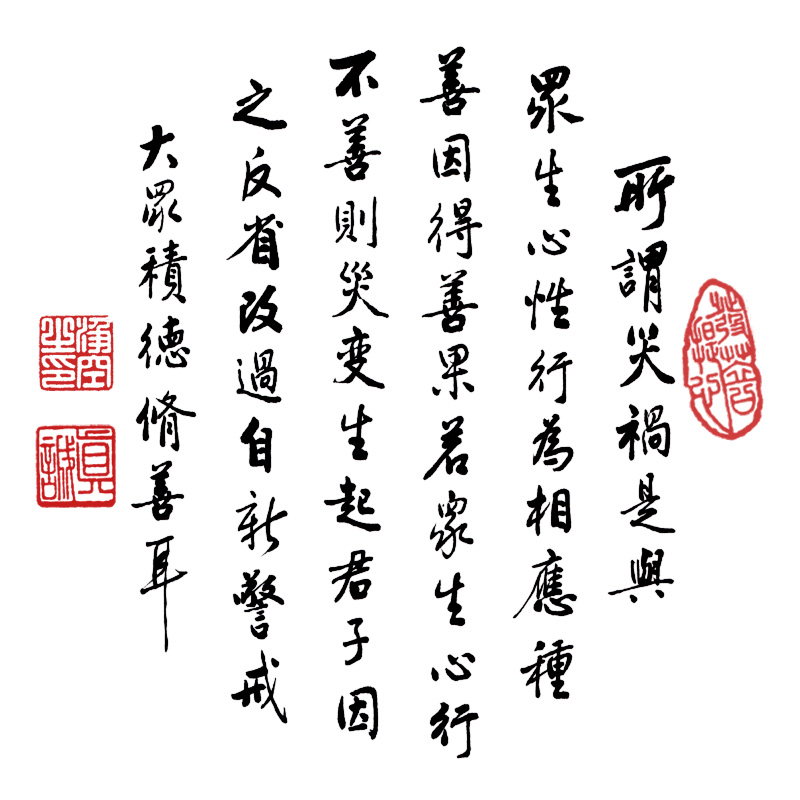 所謂災禍是與
眾生心性行為相應種
善因得善果若眾生心行
不善則災变生起君子因
之反省改過自新警戒
大眾積德脩善耳
淨空之印
真誠